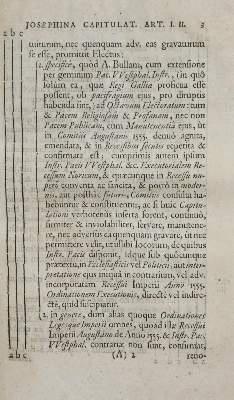 JOSEPHINA CAPITULAT. ART. I. II. 3
a b c
tuitutum, nec quenquam adv. eas gravaturum
se esse, promittit Electus:
1. specificè, quòd A. Bullam, cum extensione
per geminum Pac. VVestphal. Instr., (in quo
solum ea, quæ Regi Gallia prohœcta esse
possent, ob pacifragium ejus, pro diruptis
habenda sint,) ad Octavum Electoratum: tum
& Pacem Religiosam & Profanam, nec non
Pacem Publicam, cum Manutenentia ejus, ut
in Comitiis Augustanis 1555. denuò agnita,
emendata, & in Recessibus secutis repetita &
confirmata est; cumprimis autem ipsum
Instr. Pacis VVestphal. &c. Executorialem Re-
cessum Noricum, & quæcunque in Recessu nu-
pero conventa ac sancita, & porrò in moder-
nis, aut posthàc futuris, Comitiis consulta ha-
bebuntur & constituentur, ac si huic Capitu-
lationi verbotenus inserta forent, continuò,
firmiter & inviolabiliter, servare, manutene-
re, nec adversus ea quenquam gravare, ut nec
permittere velit, utalibi locorum, de quibus
Instr. Pacis disponit, idque sub quòcunque
prætextu, in Ecclesiasticis vel Politicis, aut inter-
pretatione ejus iniquâ in contrarium, vel adv.
incorporatam Recessui Imperii Anno 1555.
Ordinationem Executionis, directè vel indire-
ctè, quid suscipiatur.
2. in genere, dum alias quoque Ordinationes
Legesque Imperii omnes, quoad istæ Recessui
Imperii Augustano de Anno 1555. & Instr. Pac.
VVestphal. contrariæ non sunt, confirmat,
a b c (A) 2 reno-